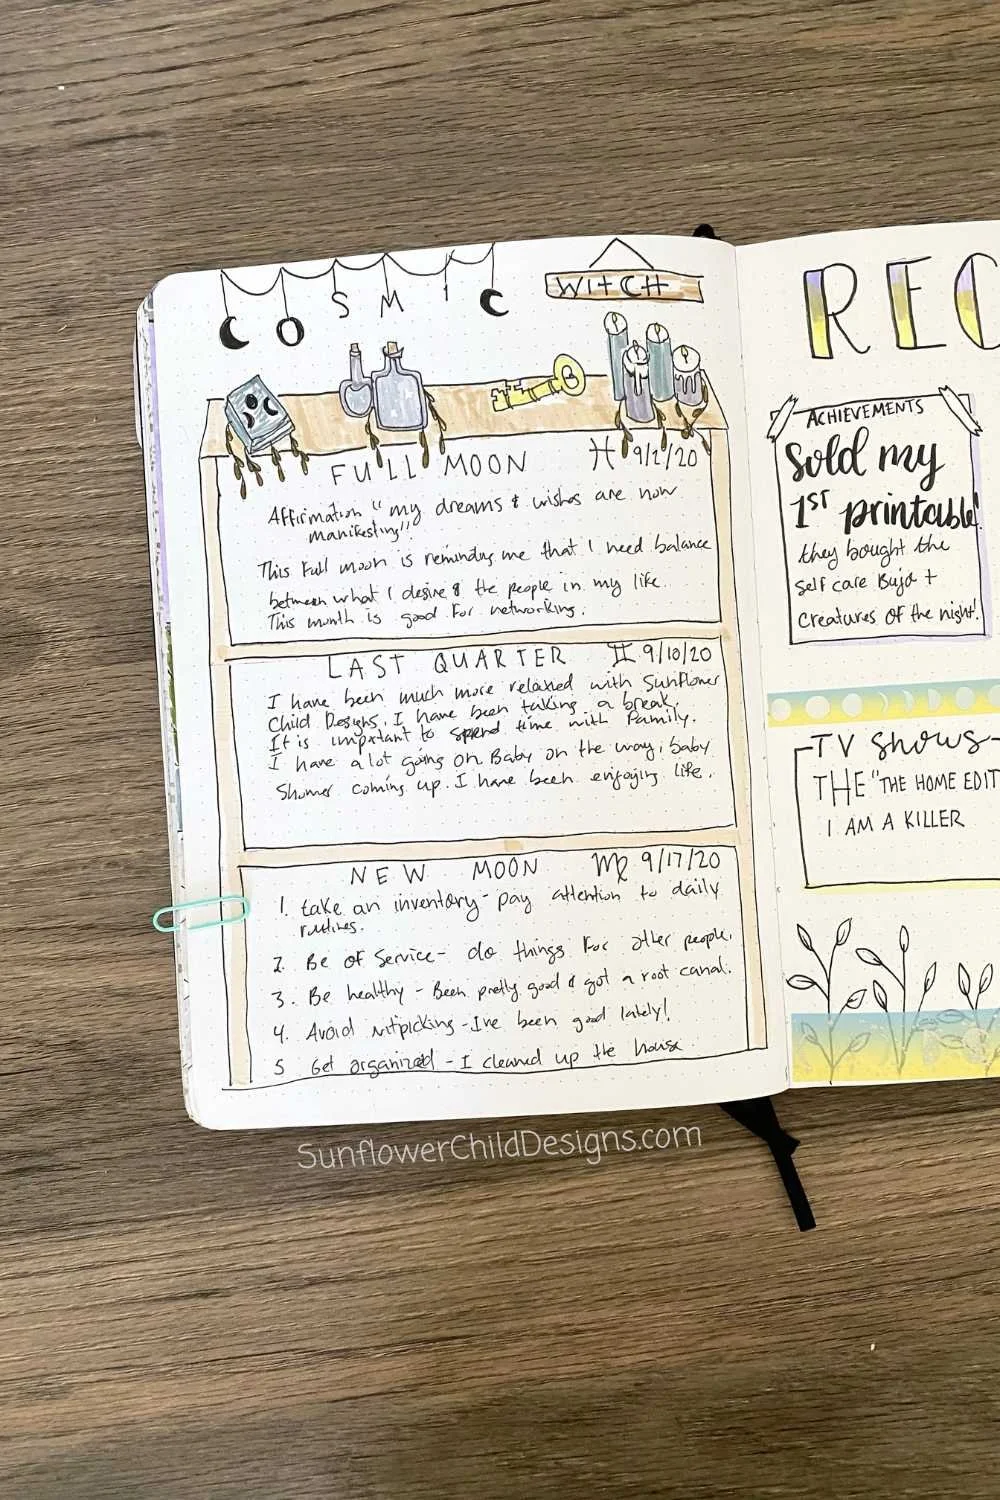 COSMIC
WITCH
FULL MOON ♓ 9/2/20
Affirmation "my dreams & wishes are now
manifesting"
This Full moon is reminding me that I need balance
between what I desire & the people in my life.
This month is good for networking.
LAST QUARTER ♊ 9/10/20
I have been much more relaxed with Sunflower
Child Designs. I have been taking a break.
It is important to spend time with family.
I have a lot going on. Baby on the way, baby
Shower coming up. I have been enjoying life.
NEW MOON ♍ 9/17/20
1. take an inventory - pay attention to daily
routines.
2. Be of Service - do things for other people.
3. Be healthy - Been pretty good & got a root canal.
4. Avoid nitpicking - I've been good lately!
5 Get organized - I cleaned up the house
REC
ACHIEVEMENTS
Sold my
1ST printable!
they bought the
self care Bujo +
creatures of the night!
TV Shows
THE "THE HOME EDIT
I AM A KILLER
SunflowerChildDesigns.com